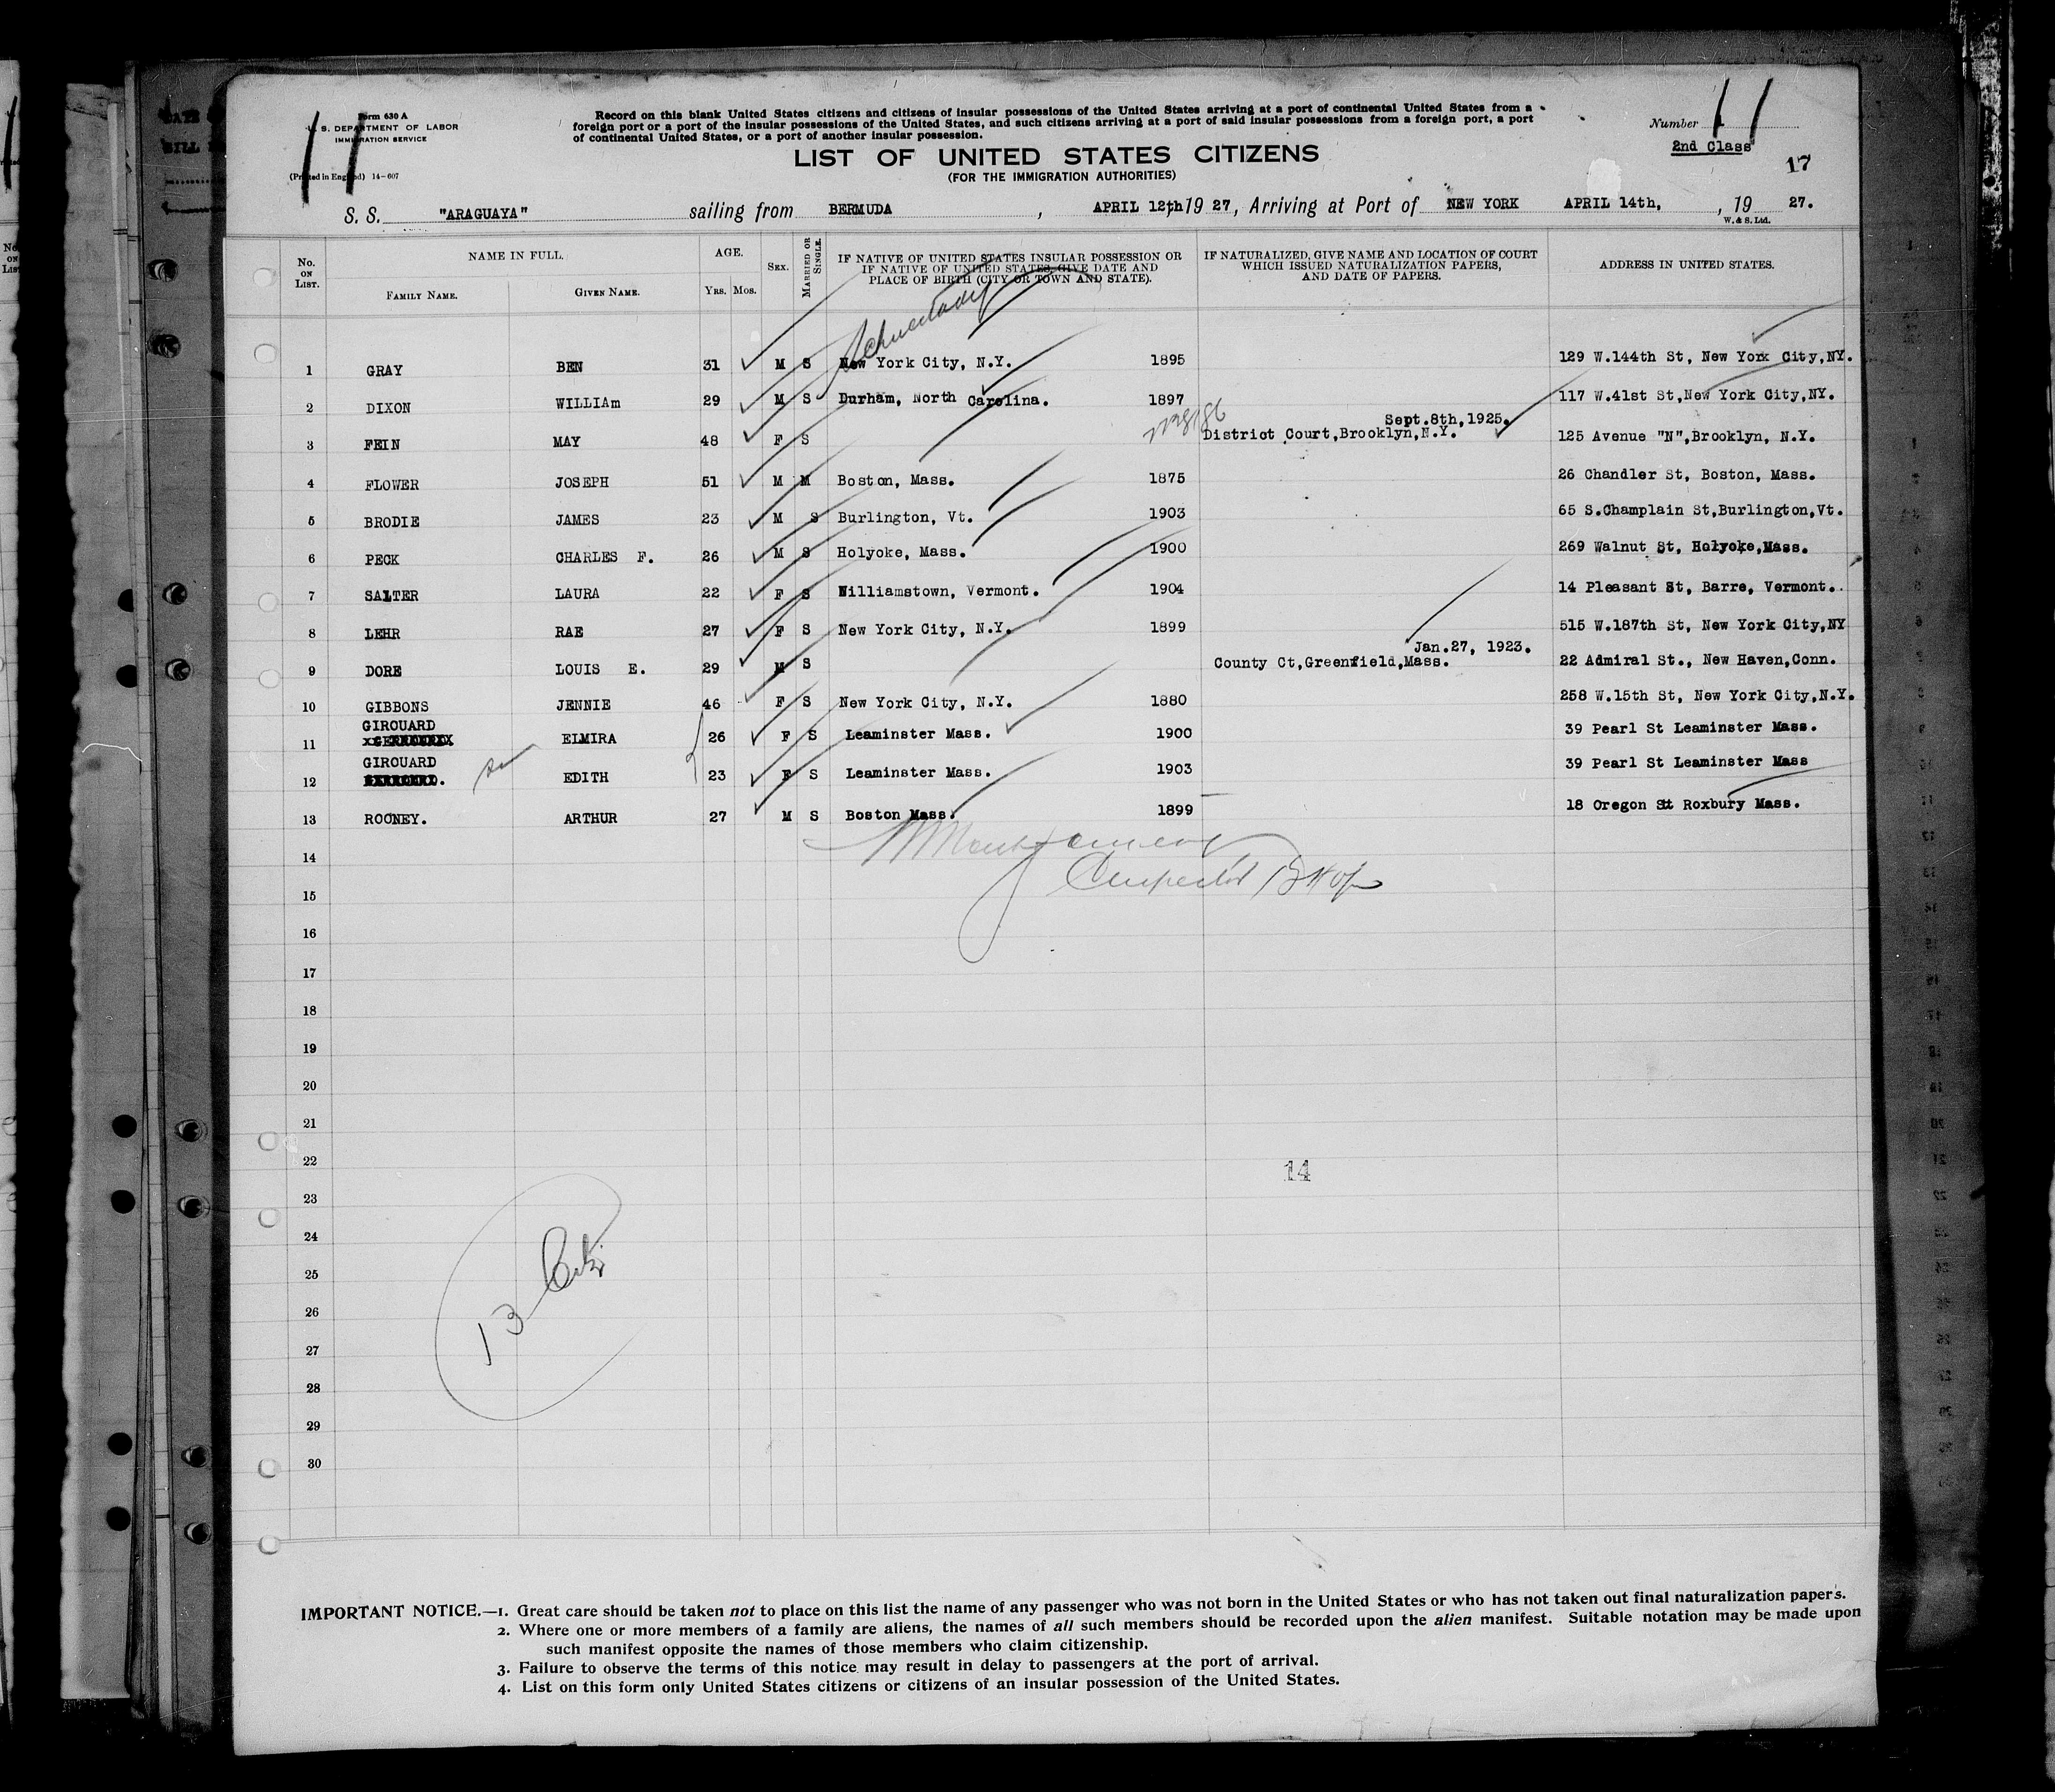 Form 630 A
U. S. DEPARTMENT OF LABOR
IMMIGRATION SERVICE
(Printed in England) 14-607
Record on this blank United States citizens and citizens of insular possessions of the United States arriving at a port of continental United States from a
foreign port or a port of the insular possessions of the United States, and such citizens arriving at a port of said insular possessions from a foreign port, a port
of continental United States, or a port of another insular possession.
LIST OF UNITED STATES CITIZENS
(FOR THE IMMIGRATION AUTHORITIES)
Number 1
2nd Class
17
S. S. "ARAGUAYA" sailing from BERMUDA , APRIL 12th 19 27, Arriving at Port of NEW YORK APRIL 14th, , 19 27.
W. & S. Ltd.
No. ON LIST.
NAME IN FULL.
FAMILY NAME. GIVEN NAME.
AGE.
YRS. MOS.
SEX.
MARRIED OR SINGLE.
IF NATIVE OF UNITED STATES INSULAR POSSESSION OR
IF NATIVE OF UNITED STATES, GIVE DATE AND
PLACE OF BIRTH (CITY OR TOWN AND STATE).
IF NATURALIZED, GIVE NAME AND LOCATION OF COURT
WHICH ISSUED NATURALIZATION PAPERS,
AND DATE OF PAPERS.
ADDRESS IN UNITED STATES.
Schenectady
1 GRAY BEN 31 M S New York City, N.Y. 1895 129 W.144th St, New York City,NY.
2 DIXON WILLIAm 29 M S Durham, North Carolina. 1897 117 W.41st St,New York City,NY.
Sept.8th,1925.
3 FEIN MAY 48 F S District Court,Brooklyn,N.Y. 125 Avenue "N",Brooklyn, N.Y.
4 FLOWER JOSEPH 51 M M Boston, Mass. 1875 26 Chandler St, Boston, Mass.
5 BRODIE JAMES 23 M S Burlington, Vt. 1903 65 S.Champlain St,Burlington,Vt.
6 PECK CHARLES F. 26 M S Holyoke, Mass. 1900 269 Walnut St, Holyoke,Mass.
7 SALTER LAURA 22 F S Williamstown, Vermont. 1904 14 Pleasant St, Barre, Vermont.
8 LEHR RAE 27 F S New York City, N.Y. 1899 515 W.187th St, New York City,NY
Jan.27, 1923.
9 DORE LOUIS E. 29 M S County Ct,Greenfield,Mass. 22 Admiral St., New Haven,Conn.
10 GIBBONS JENNIE 46 F S New York City, N.Y. 1880 258 W.15th St, New York City,N.Y.
GIROUARD
11 ELMIRA 26 F S Leaminster Mass. 1900 39 Pearl St Leaminster Mass.
GIROUARD
12 EDITH 23 F S Leaminster Mass. 1903 39 Pearl St Leaminster Mass
13 ROONEY. ARTHUR 27 M S Boston Mass. 1899 18 Oregon St Roxbury Mass.
14
15
16
17
18
19
20
21
22
14
23
24
25
26
27
28
29
30
13
IMPORTANT NOTICE.—1. Great care should be taken not to place on this list the name of any passenger who was not born in the United States or who has not taken out final naturalization papers.
2. Where one or more members of a family are aliens, the names of all such members should be recorded upon the alien manifest. Suitable notation may be made upon
such manifest opposite the names of those members who claim citizenship.
3. Failure to observe the terms of this notice may result in delay to passengers at the port of arrival.
4. List on this form only United States citizens or citizens of an insular possession of the United States.